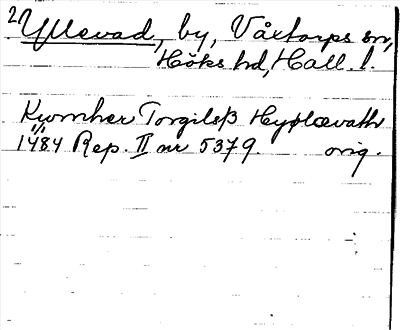 2 Yllevad, by, Våxtorps sn,
Höks hd, Hall. l.
Kwnher Torgilsß Heyøloevath
1/1
1484 Rep. II nr 5379. orig.